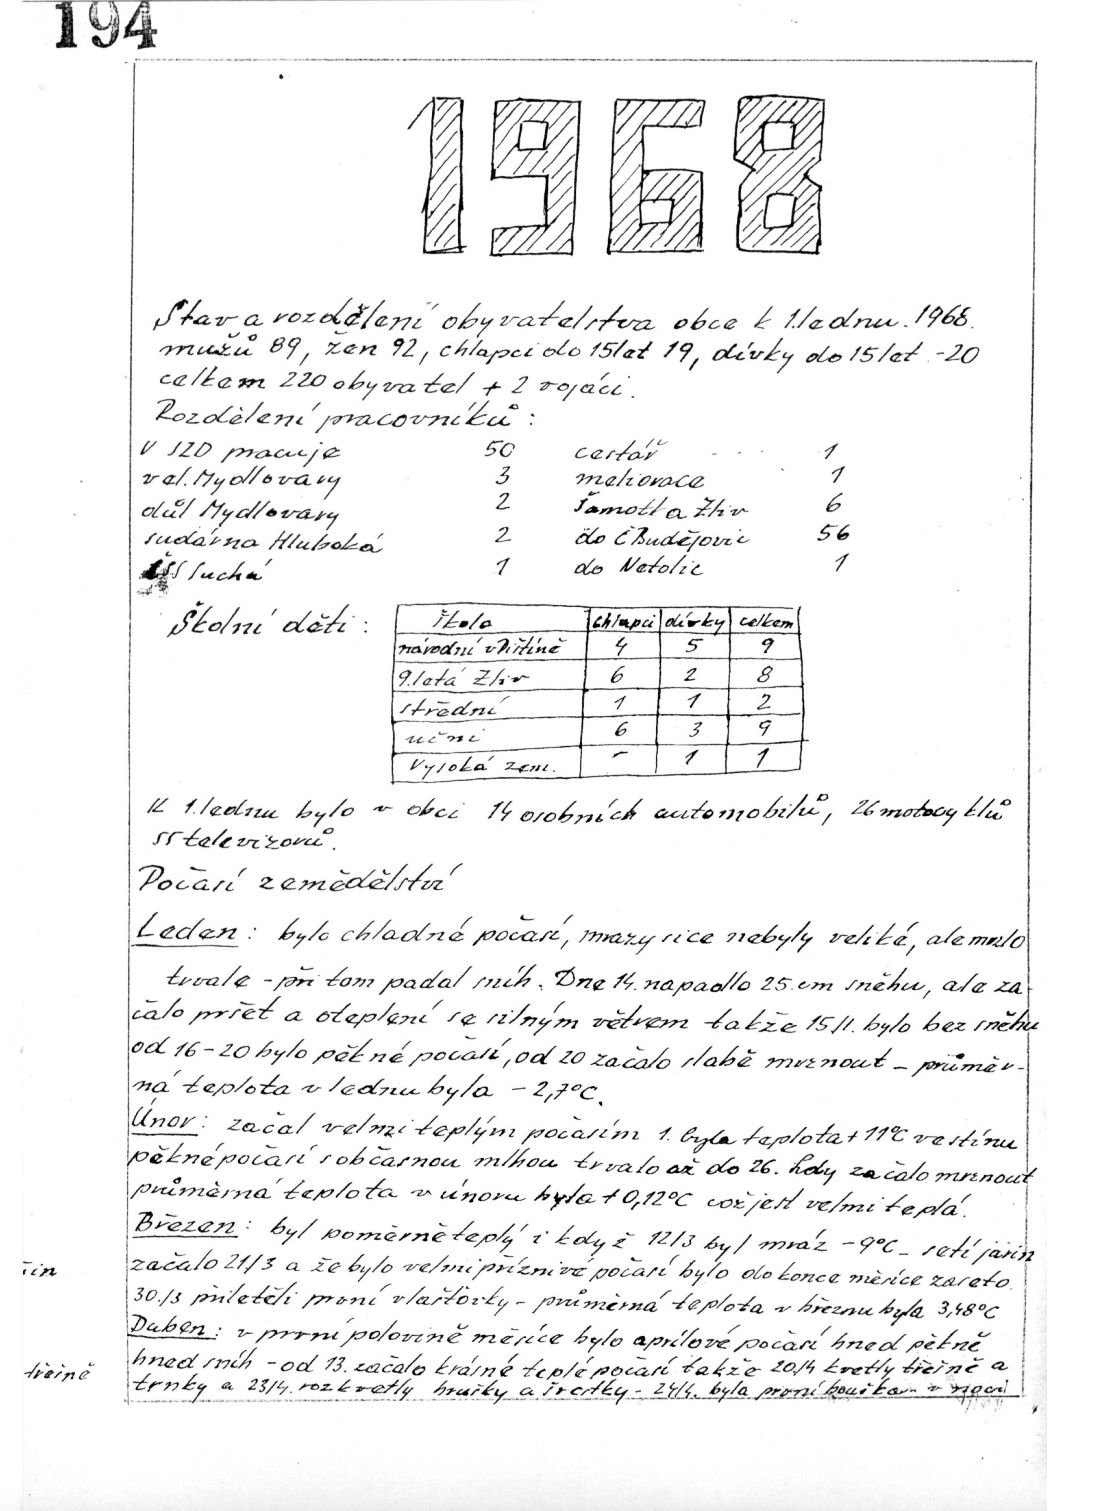 194
1968
Stav a rozdělení obyvatelstva obce k 1. lednu. 1968.
mužů 89, žen 92, chlapci do 15 let 19, dívky do 15 let - 20
celkem 220 obyvatel + 2 vojáci.
Rozdělení pracovníků:
V JZD pracuje 50 cestář 1
vel. Mydlovary 3 meliorace 1
důl Mydlovary 2 Šamotka Zliv 6
sudárna Hluboká 2 do Č Budějovic 56
ČSS Suchá 1 do Netolic 1
Školní děti:
Škola chlapci dívky celkem
národní v Dištíně 4 5 9
9. letá Zliv 6 2 8
střední 1 1 2
učni 6 3 9
Vysoká zem. - 1 1
K 1. lednu bylo v obci 14 osobních automobilů, 26 motocyklů
55 televizorů.
Počasí zemědělství
Leden: bylo chladné počasí, mrazy sice nebyly veliké, ale mrzlo
trvale - při tom padal sníh. Dne 14. napadlo 25 cm sněhu, ale za
čalo pršet a oteplení se silným větrem takže 15/1. bylo bez sněhu
od 16-20 bylo pěkné počasí, od 20 začalo slabě mrznout - průměr-
ná teplota v lednu byla - 2,7°C.
Únor: začal velmi teplým počasím 1. byla teplota + 11°C ve stínu
pěkné počasí s občasnou mlhou trvalo až do 26. kdy začalo mrznout
průměrná teplota v únoru byla + 0,12°C což jest velmi teplá.
Březen: byl poměrně teplý i když 12/3 byl mráz - 9°C - setí jařin
začalo 21/3 a že bylo velmi příznivé počasí bylo do konce měsíce zaseto.
30./3 přiletěli první vlašťovky - průměrná teplota v březnu byla 3,48°C
Duben: v první polovině měsíce bylo aprílové počasí hned pěkně
hned sníh - od 13. začalo krásné teplé počasí takže 20/4 kvetly třešně a
trnky a 23/4. rozkvetly hrušky a švestky - 24/4. byla první bouřka - v noci
šin
třešně